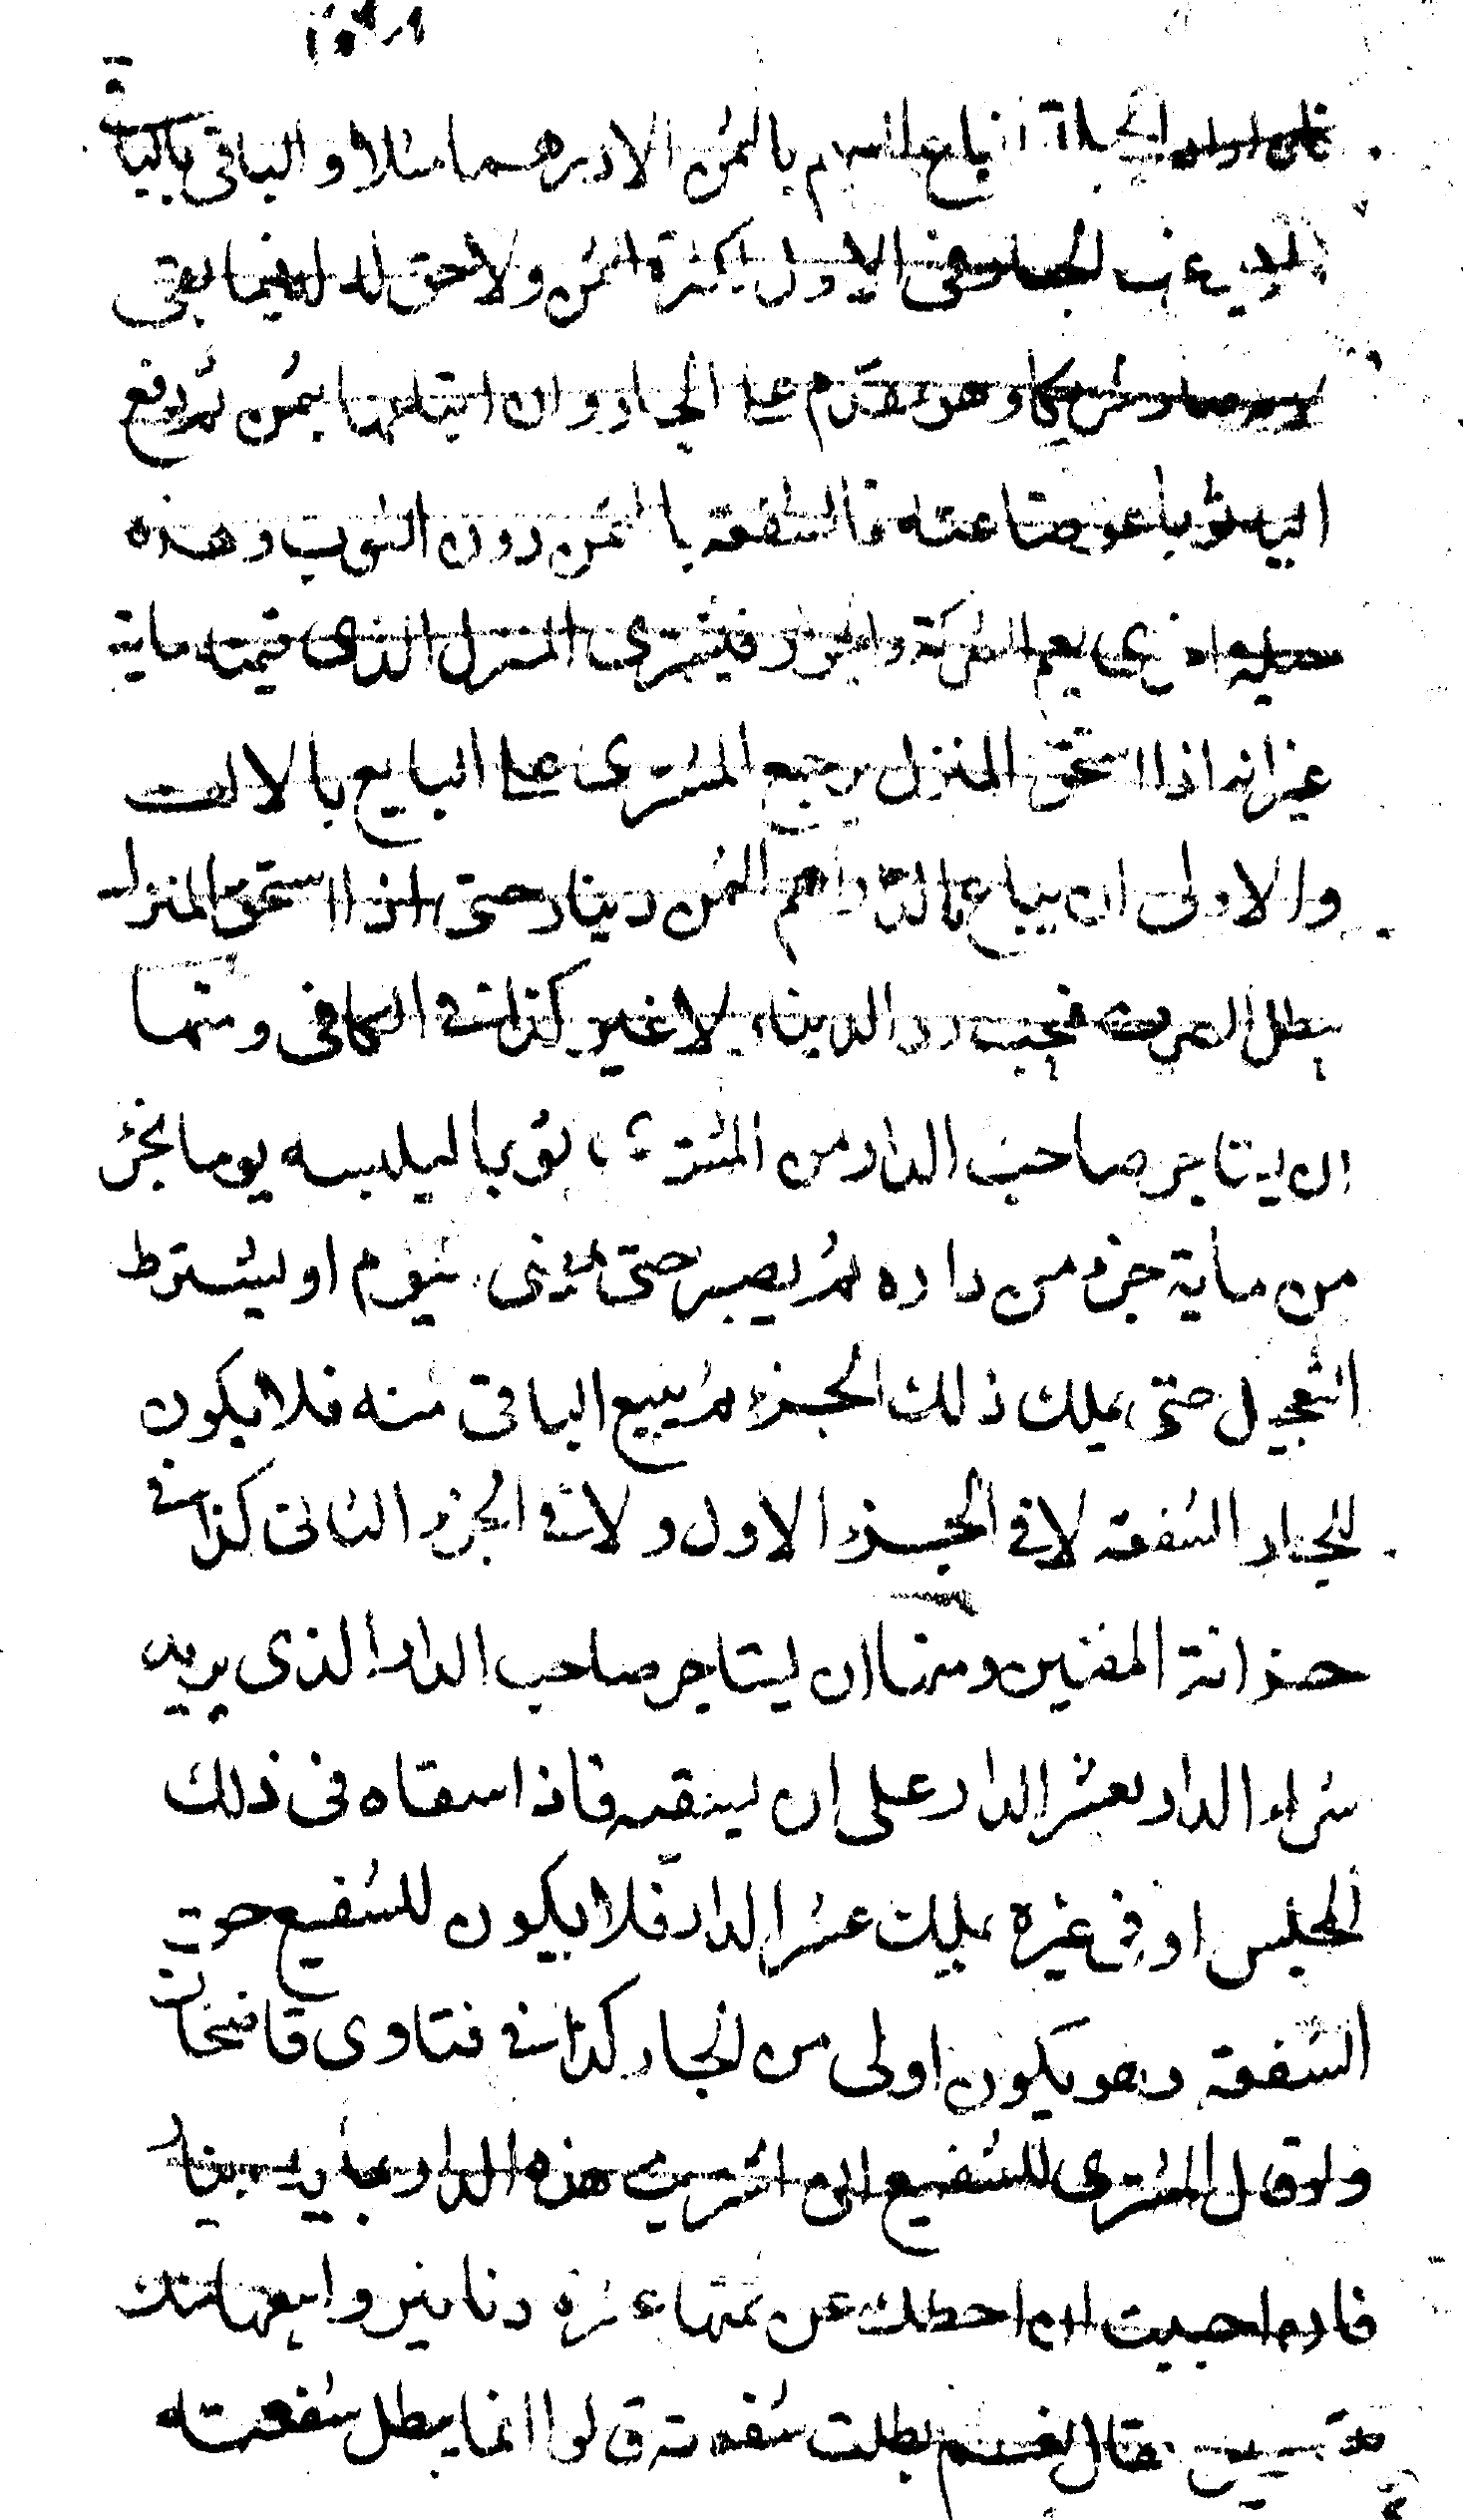 فان اراد الحيلة ابتاع السهم بالثمن الا درهما مثلا والباقي بالباقي
الجار في الاول لكثرة الثمن ولا حق له فيما بقي
لانه صار شريكا وهو مقدم على الجار وان ابتاعها بثمن ثم دفع
اليه ثوبا عوضا عنه فالشفعة بالثمن دون الثوب وهذه
حيلة اخرى يعم الشركة والجوار فيشترى المنزل الذى قيمته ماية
غير انه اذا استحق المنزل يرجع المشترى على البايع بالالف
والاولى ان يباع بالدراهم الثمن دينار حتى اذا استحق المنزل
يبطل الصرف فيجب رد الدينار لا غير كذا فى الكافى ومنها
ان يستاجر صاحب الدار من المشترى ثوبا ليلبسه يوما بجزء
من ماية جزء من داره ثم يصبر حتى يمضى اليوم او يشترط
التعجيل حتى يملك ذلك الجزء ثم يبيع الباقى منه فلا يكون
للجار الشفعة لا فى الجزء الاول ولا فى الجزء الثانى كذا فى
خزانة المفتين ومنها ان يستاجر صاحب الدار الذى يريد
شراء الدار بعشر الدار على ان يسقيه فاذا سقاه فى ذلك
المجلس او فى غيره يملك عشر الدار فلا يكون للشفيع حق
الشفعة وهو يكون اولى من الجار كذا فى فتاوى قاضيخان
ولو قال المشترى للشفيع انى اشتريت هذه الدار بماية دينار
فان احببت ان احطك عن ثمنها عشرة دنانير وابيعها منك
بتسعين فقال نعم بطلت شفعته قالوا انما يبطل شفعته